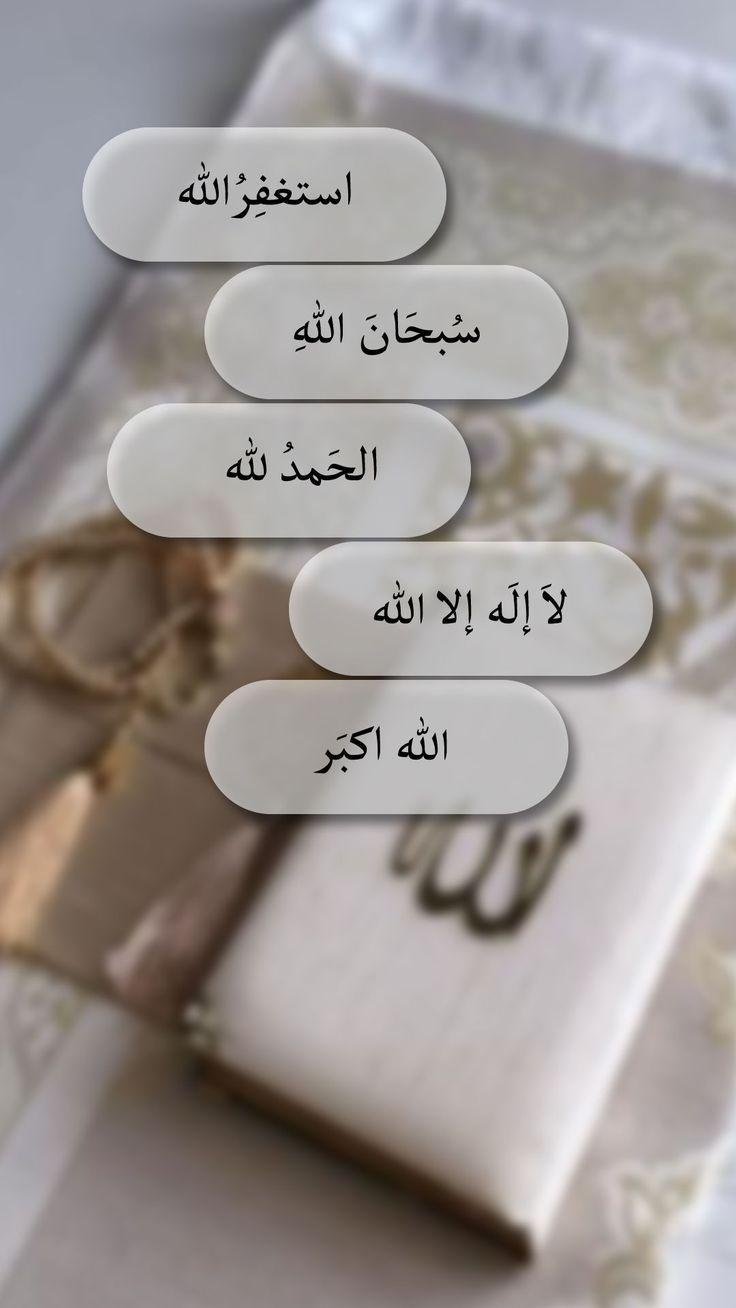 استغفِرُالله
سُبحَانَ اللهِ
الحَمدُ لله
لاَ إلَه إلا الله
الله اكبَر
الله